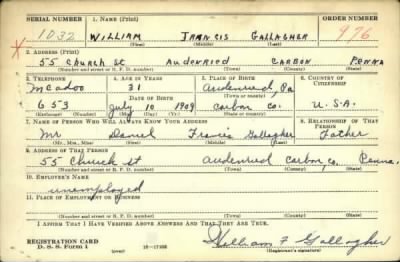 SERIAL NUMBER 1. NAME (Print) ORDER NUMBER
1032 WILLIAM FRANCIS GALLAGHER 976
(First) (Middle) (Last)
2. ADDRESS (Print)
55 Church St Audenried CARBON PENNA
(Number and street or R. F. D. number) (Town) (County) (State)
3. TELEPHONE 4. AGE IN YEARS 5. PLACE OF BIRTH 6. COUNTRY OF CITIZENSHIP
McAdoo 31 Audenried, Pa
DATE OF BIRTH
653 July 10 1909 Carbon Co. U.S.A.
(Exchange) (Number) (Mo.) (Day) (Yr.) (State or country)
7. NAME OF PERSON WHO WILL ALWAYS KNOW YOUR ADDRESS 8. RELATIONSHIP OF THAT PERSON
Mr Daniel Francis Gallagher Father
(Mr., Mrs., Miss) (First) (Middle) (Last)
9. ADDRESS OF THAT PERSON
55 Church st Audenried Carbon Co. Penna.
(Number and street or R. F. D. number) (Town) (County) (State)
10. EMPLOYER'S NAME
unemployed
11. PLACE OF EMPLOYMENT OR BUSINESS
(Number and street or R. F. D. number) (Town) (County) (State)
I AFFIRM THAT I HAVE VERIFIED ABOVE ANSWERS AND THAT THEY ARE TRUE.
REGISTRATION CARD
D. S. S. Form 1 (over) William F Gallagher
(Registrant's signature)